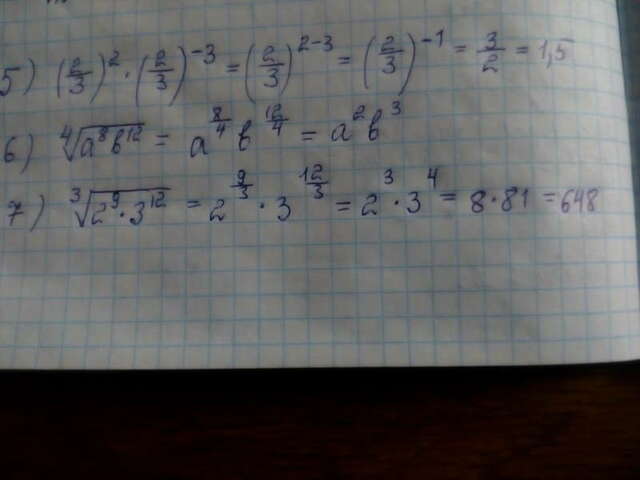 5) (2/3)^2 · (2/3)^-3 = (2/3)^2-3 = (2/3)^-1 = 3/2 = 1,5
6) ⁴√a^8 b^12 = a^8/4 b^12/4 = a^2 b^3
7) ³√2^9 · 3^12 = 2^9/3 · 3^12/3 = 2^3 · 3^4 = 8 · 81 = 648